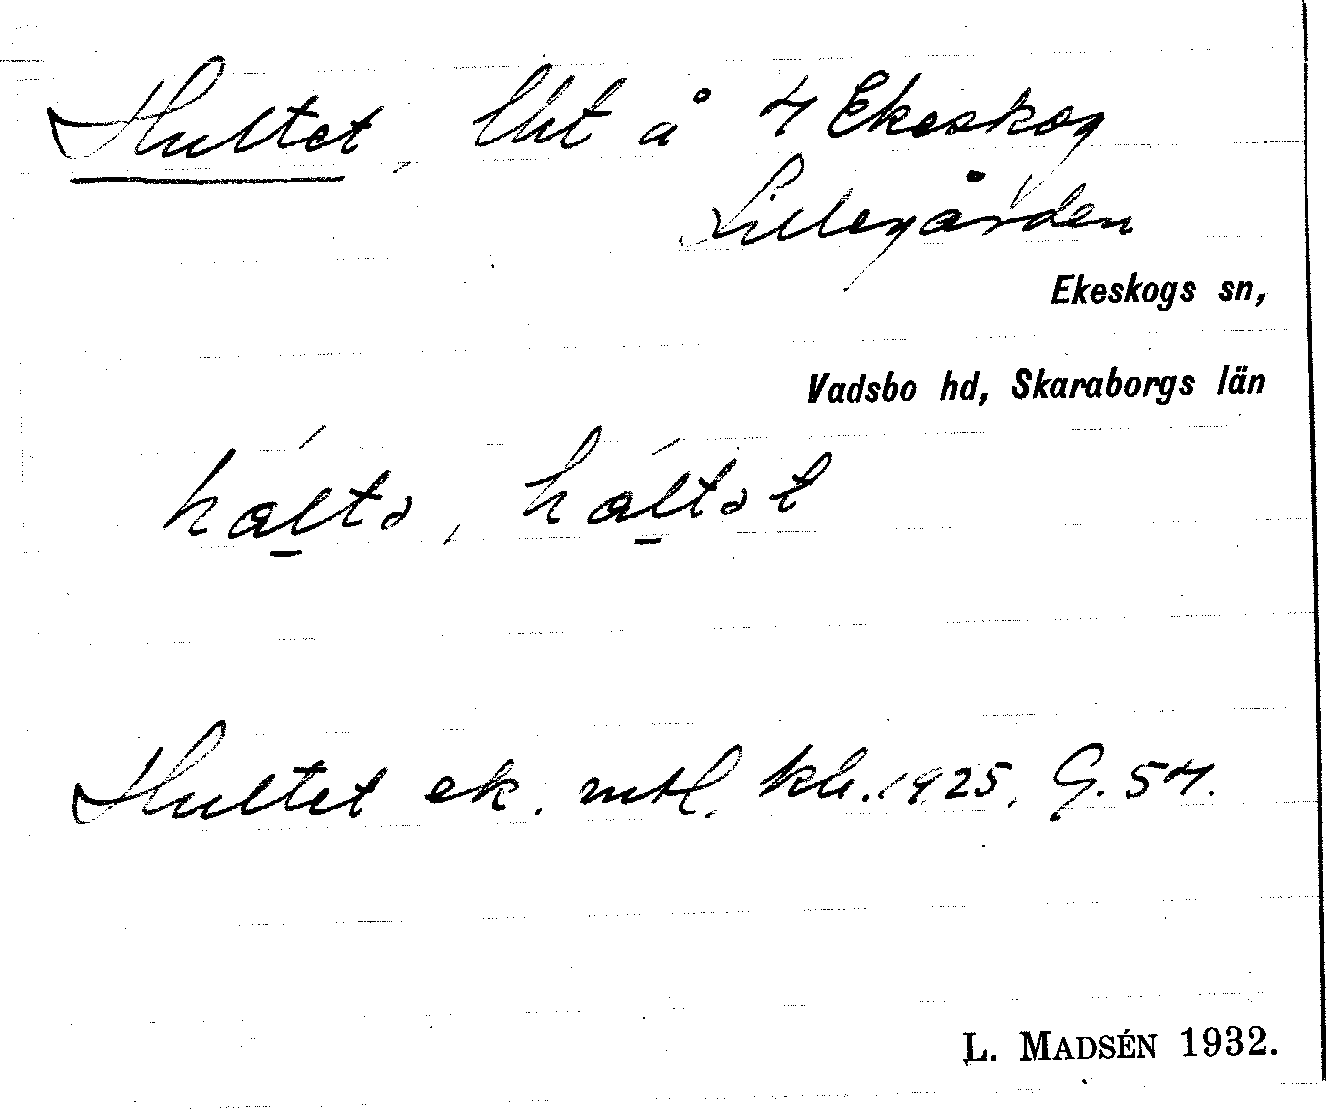 Hultet, lht å 4 Ekeskog
Lillegården
Ekeskogs sn,
Vadsbo hd, Skaraborgs län
Hultet ek. mtl. kh. 1925. G. 54.
L. MADSÉN 1932.